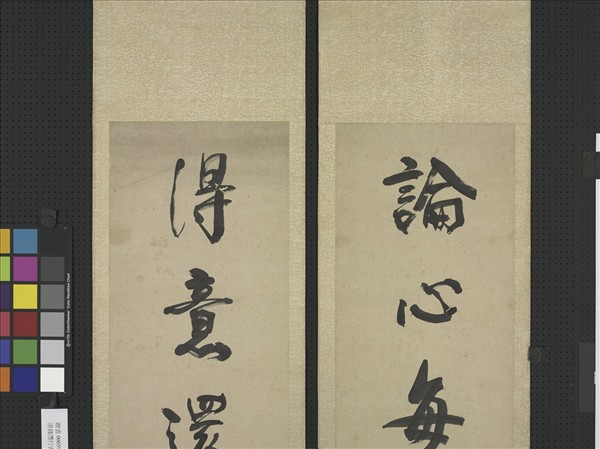 論心每
得意還